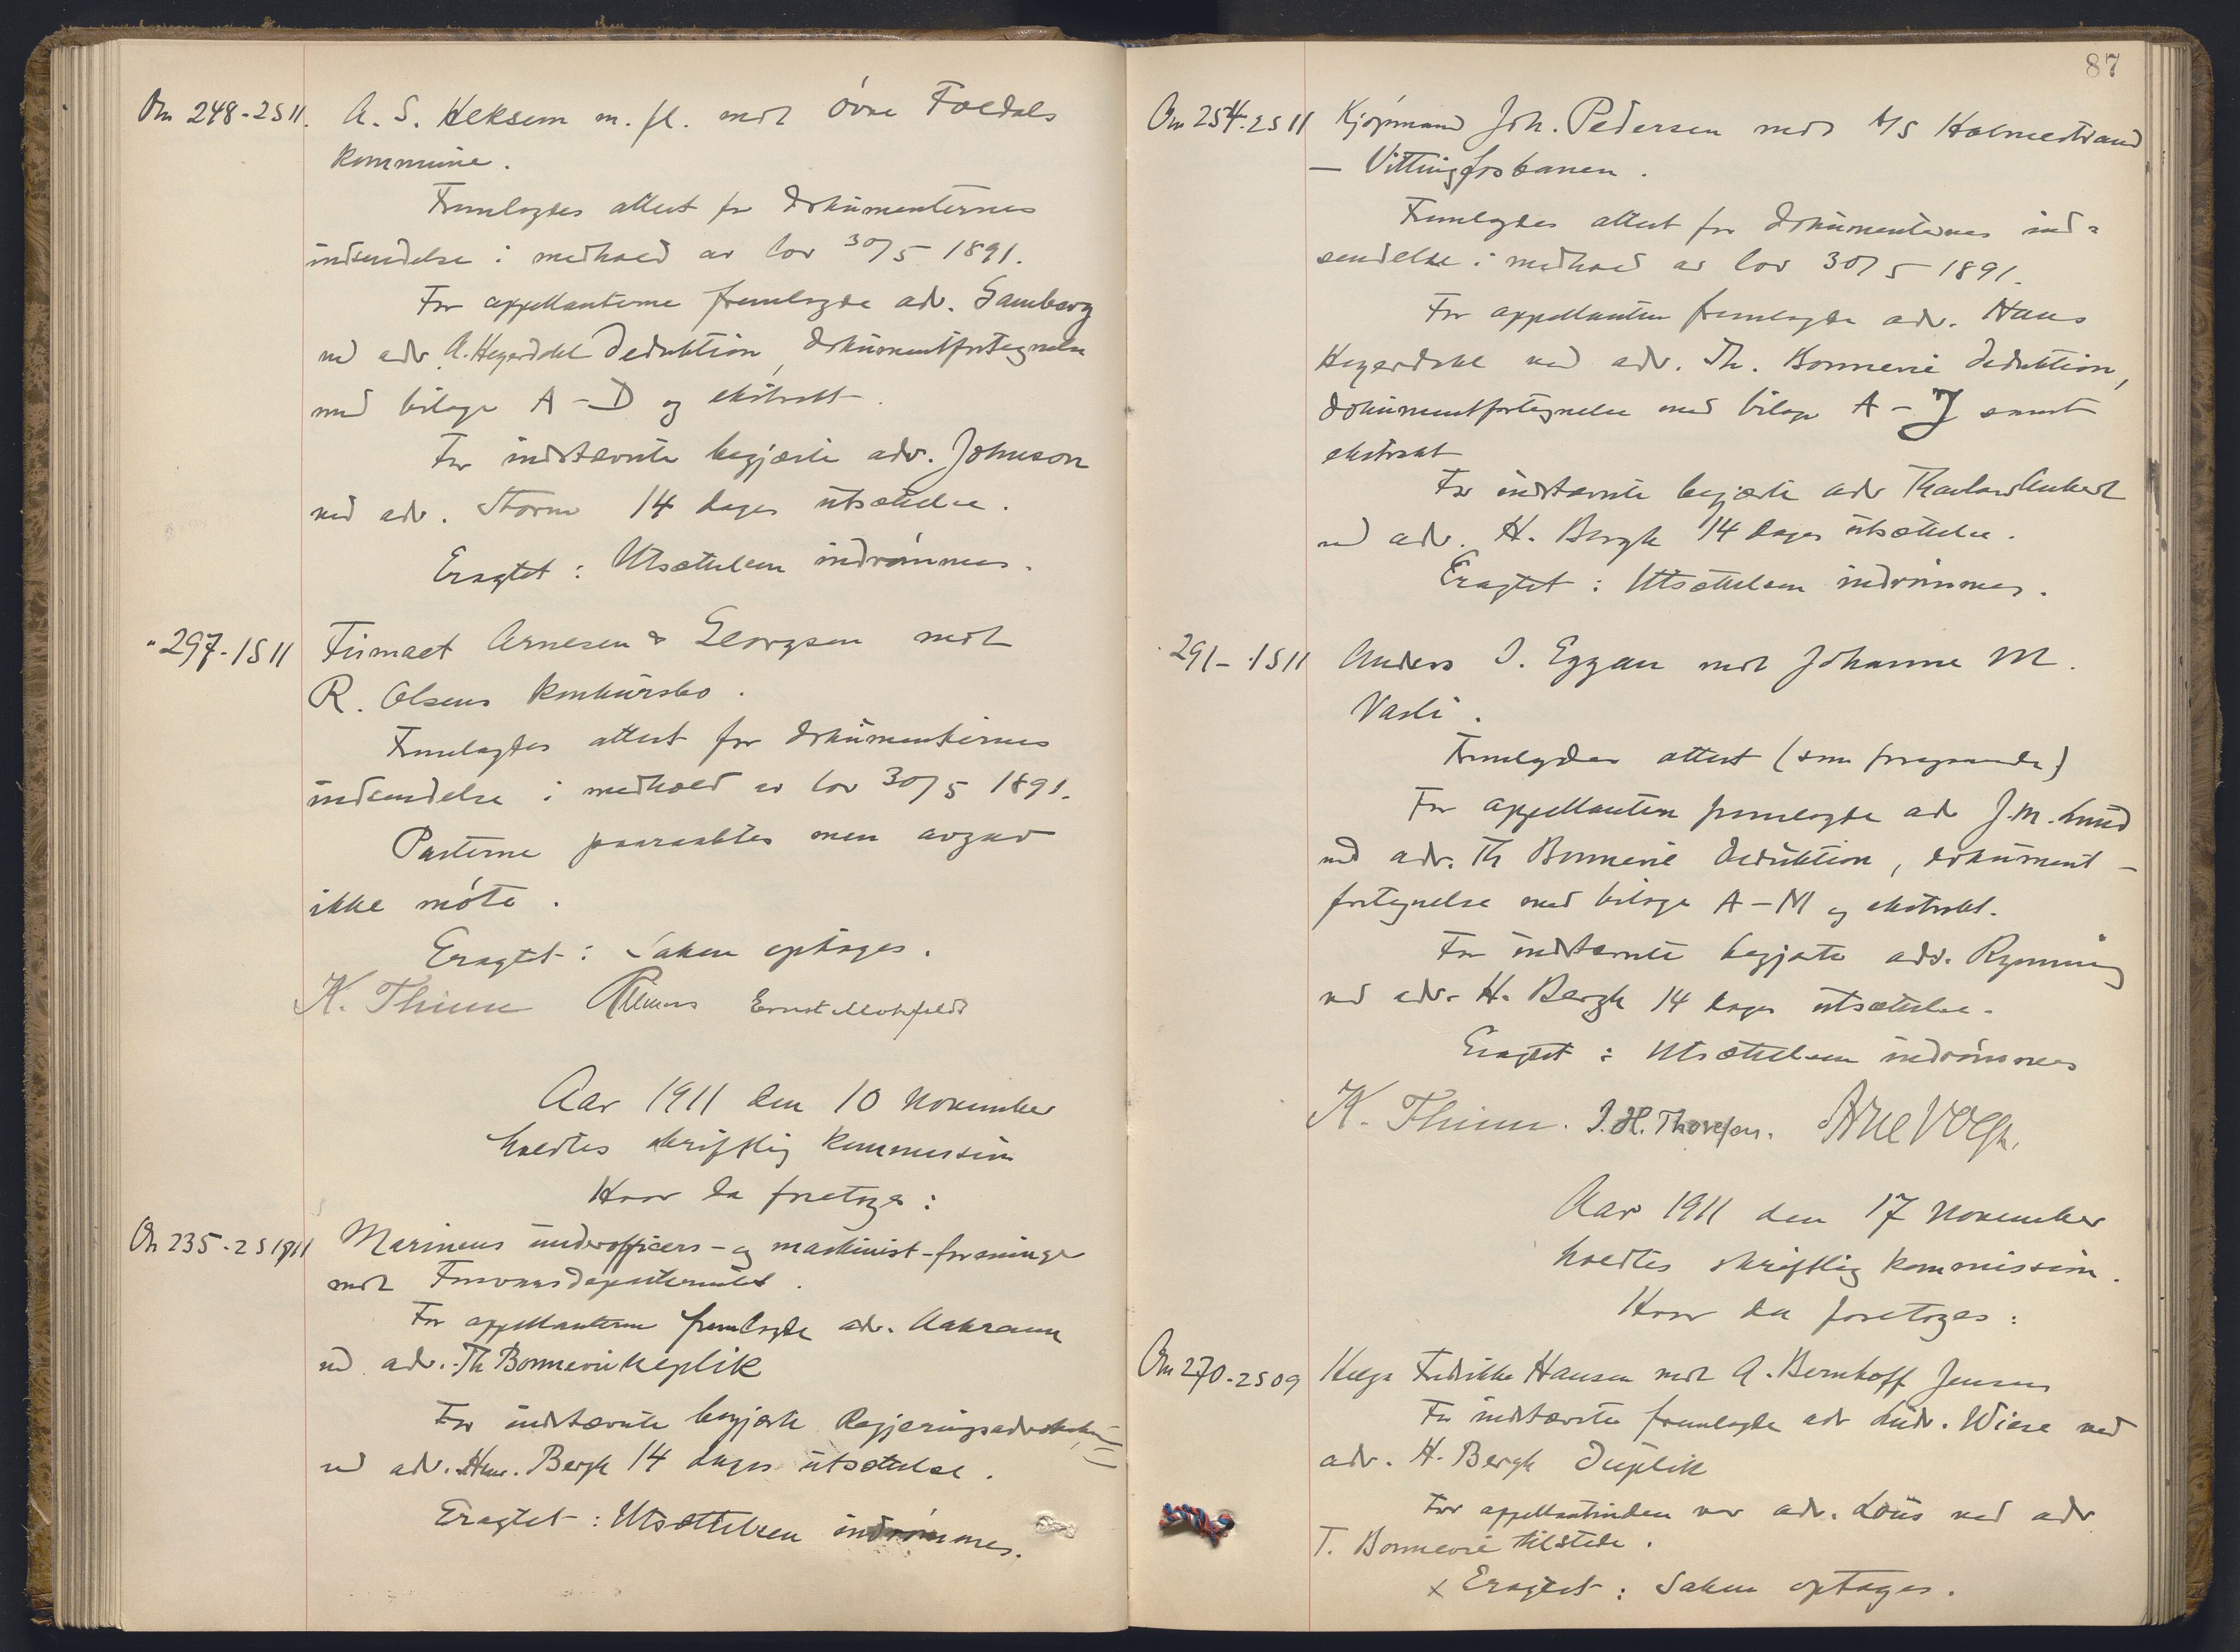 Om 248-2S11. A. S. Heksem m. fl. mot Övre Foldals
kommune.
Fremlagdes attest for dokumenternes
indsendelse i medhold av lov 30/5 1891.
For appellanterne fremlagde adv. Hamberg
ved adv. A. Heyerdahl deduktion, dokumentfortegnelse
med bilage A-D og ekstrakt.
For indstævnte begjærte adv. Johnson
ved adv. Storm 14 dages utsættelse.
Eragtet: Utsættelsen indrömmes.
" 297-1S11 Firmaet Arnesen & Georgsen mot
R. Olsens konkursbo.
Fremlagdes attest for dokumenternes
indsendelse i medhold av lov 30/5 1891.
Parterne paaraabtes men avgav
ikke möte.
Eragtet: Saken optages.
K. Thinn Ernst Motzfeldt
Aar 1911 den 10 November
holdtes skriftlig kommission
Hvor da foretoges:
Om 235-2S1911 Marinens underofficers- og maskinist-foreninger
mot Forsvarsdepartementet.
For appellanterne fremlagde adv. Aakrann
ved adv. Th Bonnevie Replik
For indstævnte begjærte Regjeringsadvokaten
ved adv. Hm. Bergh 14 dages utsættelse.
Eragtet: Utsættelsen indrömmes.
87
Om 254-2S11 Kjöpmand Joh. Pedersen mot A/S Holmestrand
— Vittingfosbanen.
Fremlagdes attest for dokumenternes ind=
sendelse i medhold av lov 30/5 1891.
For appellanten fremlagde adv. Hans
Heyerdahl ved adv. Th. Bonnevie deduktion,
dokumentfortegnelse med bilage A-J samt
ekstrakt
For indstævnte begjærte adv
ved adv. H. Bergh 14 dages utsættelse.
Eragtet: Utsættelsen indrömmes.
" 291-1S11 Anders I. Eggan mot Johanne M.
Vasli.
Fremlagdes attest (som foregaaende)
For appellanten fremlagde adv J. M. Lund
ved adv. Th Bonnevie deduktion, dokument-
fortegnelse med bilage A-M og ekstrakt.
For indstævnte begjærte adv. Rynning
ved adv. H. Bergh 14 dages utsættelse.
Eragtet: Utsættelsen indrömmes
K. Thinn. I. H. Thoresen. Arne Vogt.
Aar 1911 den 17 November
holdtes skriftlig kommission.
Hvor da foretoges:
Om 270-2S09 Helga Fredrikke Hansen mot A. Bernhoff Jensen
For indstævnte fremlagde adv Ludv. Wiese ved
adv. H. Bergh Duplik
For appellantinden var adv. Lous ved adv
T. Bonnevie tilstede.
x Eragtet: Saken optages.